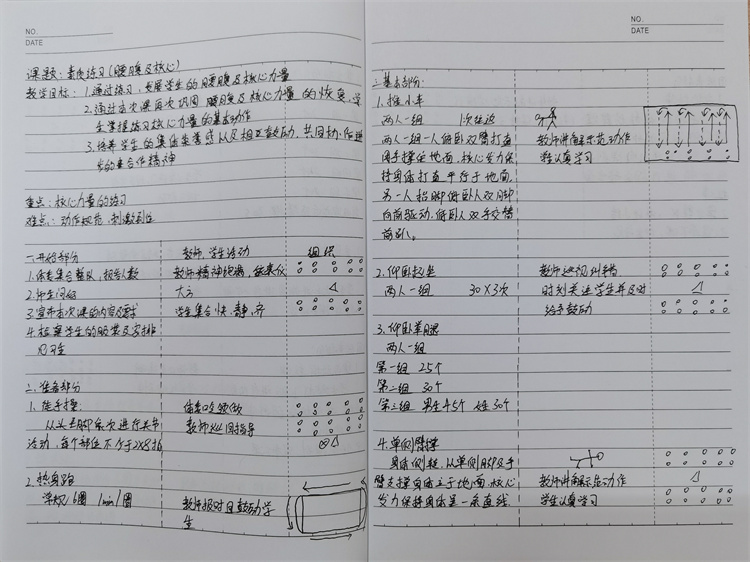 NO.
DATE
课题:素质练习(腰腹及核心)
教学目标:1.通过练习,发展学生的腰腹及核心力量
2.通过本次课再次巩固腰腹及核心力量的恢复,学
生掌握练习核心力量的基本动作
3.培养学生的集体荣誉感以及相互鼓励,共同努力促进
的集合作精神
重点:核心力量的练习
难点:动作规范,刺激到位
一.开始部分 教师.学生活动 组织
1.体委集合整队,报告人数 教师精神饱满,
2.师生问好 大方
3.宣布本次课的内容及要求 学生集合快.静.齐
4.检查学生的服装及安排
见习生
二.准备部分
1.徒手操: 体委口令领做
从头到脚依次进行关节 教师巡回指导
活动,每个部位不少于2X8拍
2.热身跑
学校6圈 1min/圈 教师报时且鼓励学
生
NO.
DATE
三.基本部分:
1.推小车
两人一组 1次往返
两人一组一人俯卧双臂打直 教师讲解示范动作
同手撑在地面,核心发力保 学生认真学习
持身体打直平行于地面,
另一人抬脚俯卧人双脚
向前驱动,俯卧人双手交替
前引。
2.仰卧起坐 教师巡视纠错
两人一组 30X3次 时刻关注学生并及时
给予鼓励
3.仰卧举腿
两人一组
第一组 25个
第二组 30个
第三组 男生45个 女生30个
4.单侧臂撑
身体侧起,从单侧脚及手
臂支撑身体立于地面,核心 教师讲解示范动作
发力保持身体呈一条直线. 学生认真学习